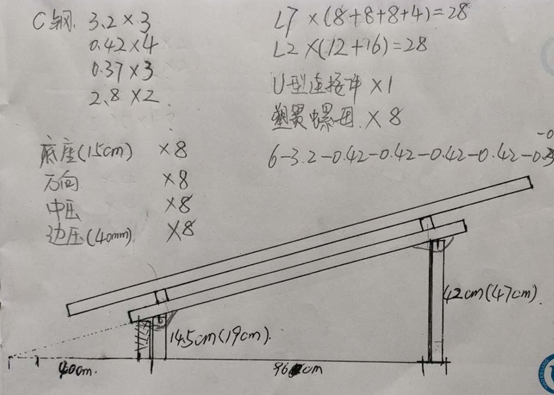 C钢 3.2×3
0.42×4
0.37×3
2.8×2
L7×(8+8+8+4)=28
L2×(12+16)=28
U型连接件×1
塑翼螺母×8
底座(15cm) ×8
方向 ×8
中压 ×8
边压(40mm) ×8
6-3.2-0.42-0.42-0.42-0.42-0.3
14.5cm(19cm).
42cm(47cm).
40cm.
96cm